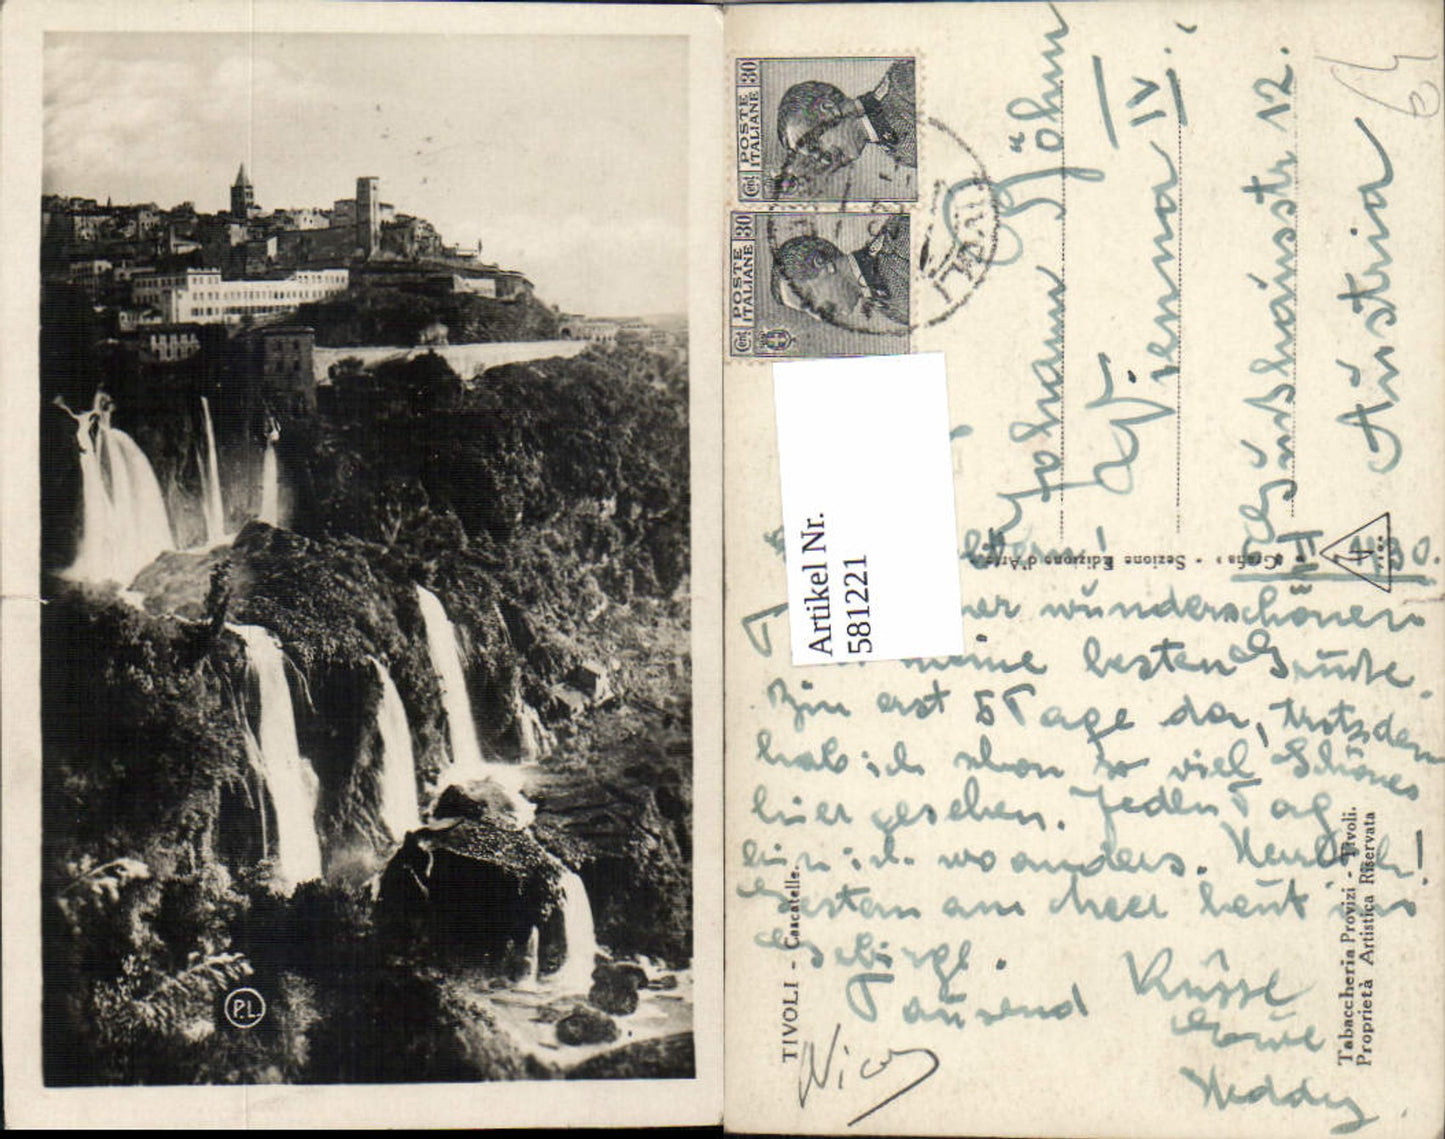 P.L.
POSTE ITALIANE
Cent 30
POSTE ITALIANE
Cent 30
TIVOLI
Artikel Nr.
581221
64
Johann Jöhn
Vienna IV.
12.
Austria
«Grafia» - Sezione Edizione d'Arte
4.30.
wunderschönen
meine besten Grüße.
Bin erst 5 Tage da, trotzdem
hab ich schon so viel Schönes
hier gesehen. Jeden Tag
bin ich wo anders. Herrlich!
Gestern am Meer heut ins
Gebirge.
Tausend Küsse
Eure
Heddy
TIVOLI - Cascatelle.
Tabaccheria Provizi - Tivoli.
Proprietà Artistica Riservata